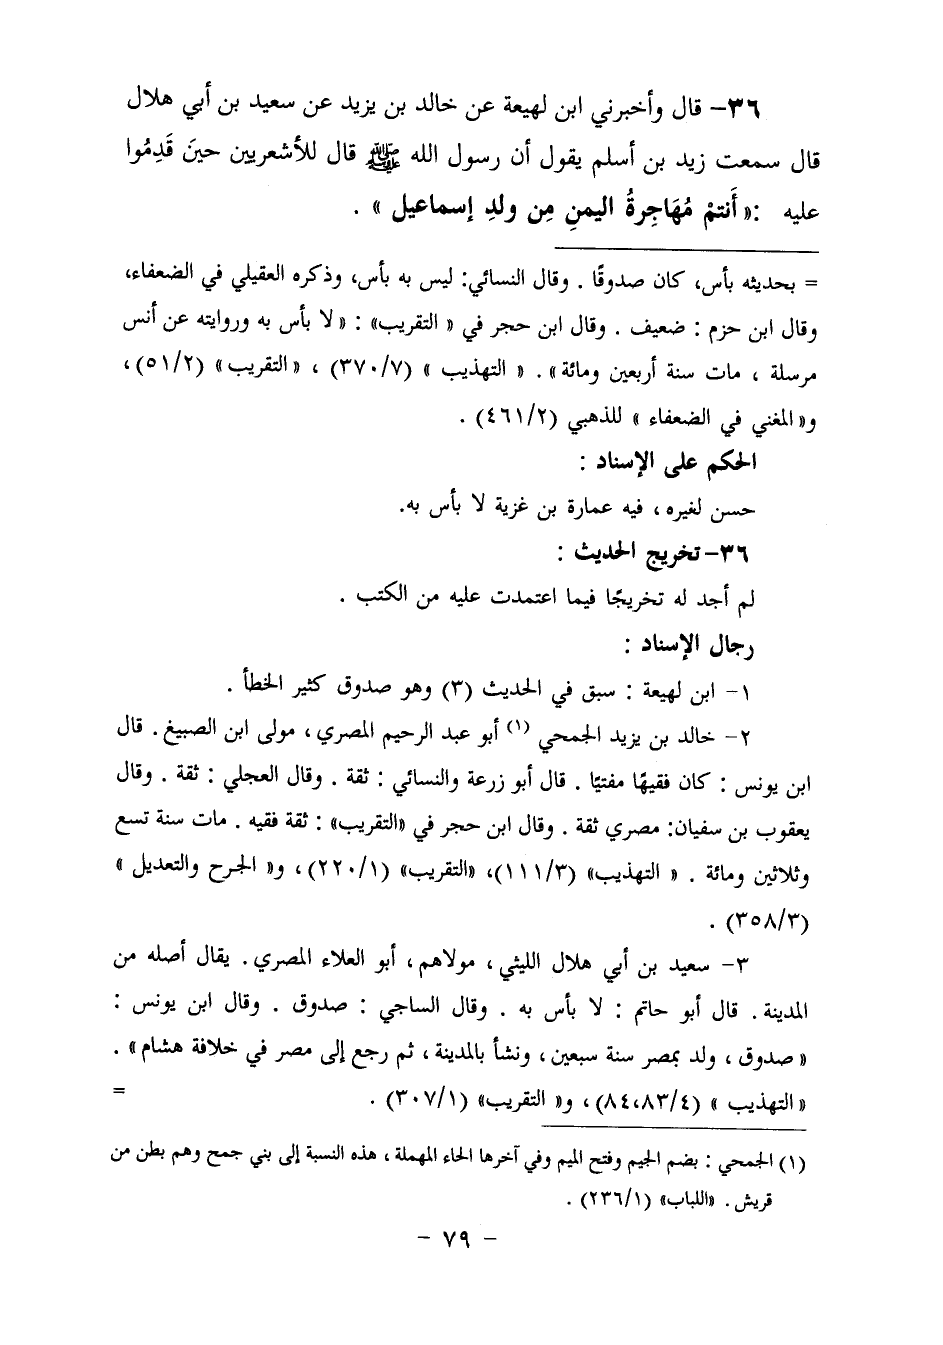 ٣٦- قال وأخبرني ابن لهيعة عن خالد بن يزيد عن سعيد بن أبي هلال
قال سمعت زيد بن أسلم يقول أن رسول الله ﷺ قال للأشعريين حينَ قَدِمُوا
عليه :« أَنتمْ مُهَاجِرةُ اليمنِ مِن ولدِ إسماعيل » .
= بحديثه بأس، كان صدوقًا . وقال النسائي: ليس به بأس، وذكره العقيلي في الضعفاء،
وقال ابن حزم : ضعيف . وقال ابن حجر في « التقريب» : « لا بأس به وروايته عن أنس
مرسلة ، مات سنة أربعين ومائة» . « التهذيب » (٣٧٠/٧) ، «التقريب» (٥١/٢)،
و«المغني في الضعفاء » للذهبي (٤٦١/٢) .
الحكم على الإسناد :
حسن لغيره ، فيه عمارة بن غزية لا بأس به.
٣٦- تخريج الحديث :
لم أجد له تخريجًا فيما اعتمدت عليه من الكتب .
رجال الإسناد :
١- ابن لهيعة : سبق في الحديث (٣) وهو صدوق كثير الخطأ .
٢- خالد بن يزيد الجمحي (١) أبو عبد الرحيم المصري ، مولى ابن الصبيغ . قال
ابن يونس : كان فقيهًا مفتيًا . قال أبو زرعة والنسائي : ثقة . وقال العجلي : ثقة . وقال
يعقوب بن سفيان: مصري ثقة . وقال ابن حجر في «التقريب» : ثقة فقيه . مات سنة تسع
وثلاثين ومائة . « التهذيب» (١١١/٣)، «التقريب» (٢٢٠/١)، و« الجرح والتعديل »
(٣٥٨/٣) .
٣- سعيد بن أبي هلال الليثي ، مولاهم ، أبو العلاء المصري . يقال أصله من
المدينة . قال أبو حاتم : لا بأس به . وقال الساجي : صدوق . وقال ابن يونس :
« صدوق ، ولد بمصر سنة سبعين ، ونشأ بالمدينة ، ثم رجع إلى مصر في خلافة هشام» .
« التهذيب » (٨٤،٨٣/٤)، و« التقريب» (٣٠٧/١) . =
(١) الجمحي : بضم الجيم وفتح الميم وفي آخرها الحاء المهملة ، هذه النسبة إلى بني جمح وهم بطن من
قريش . «اللباب» (٢٣٦/١) .
- ٧٩ -